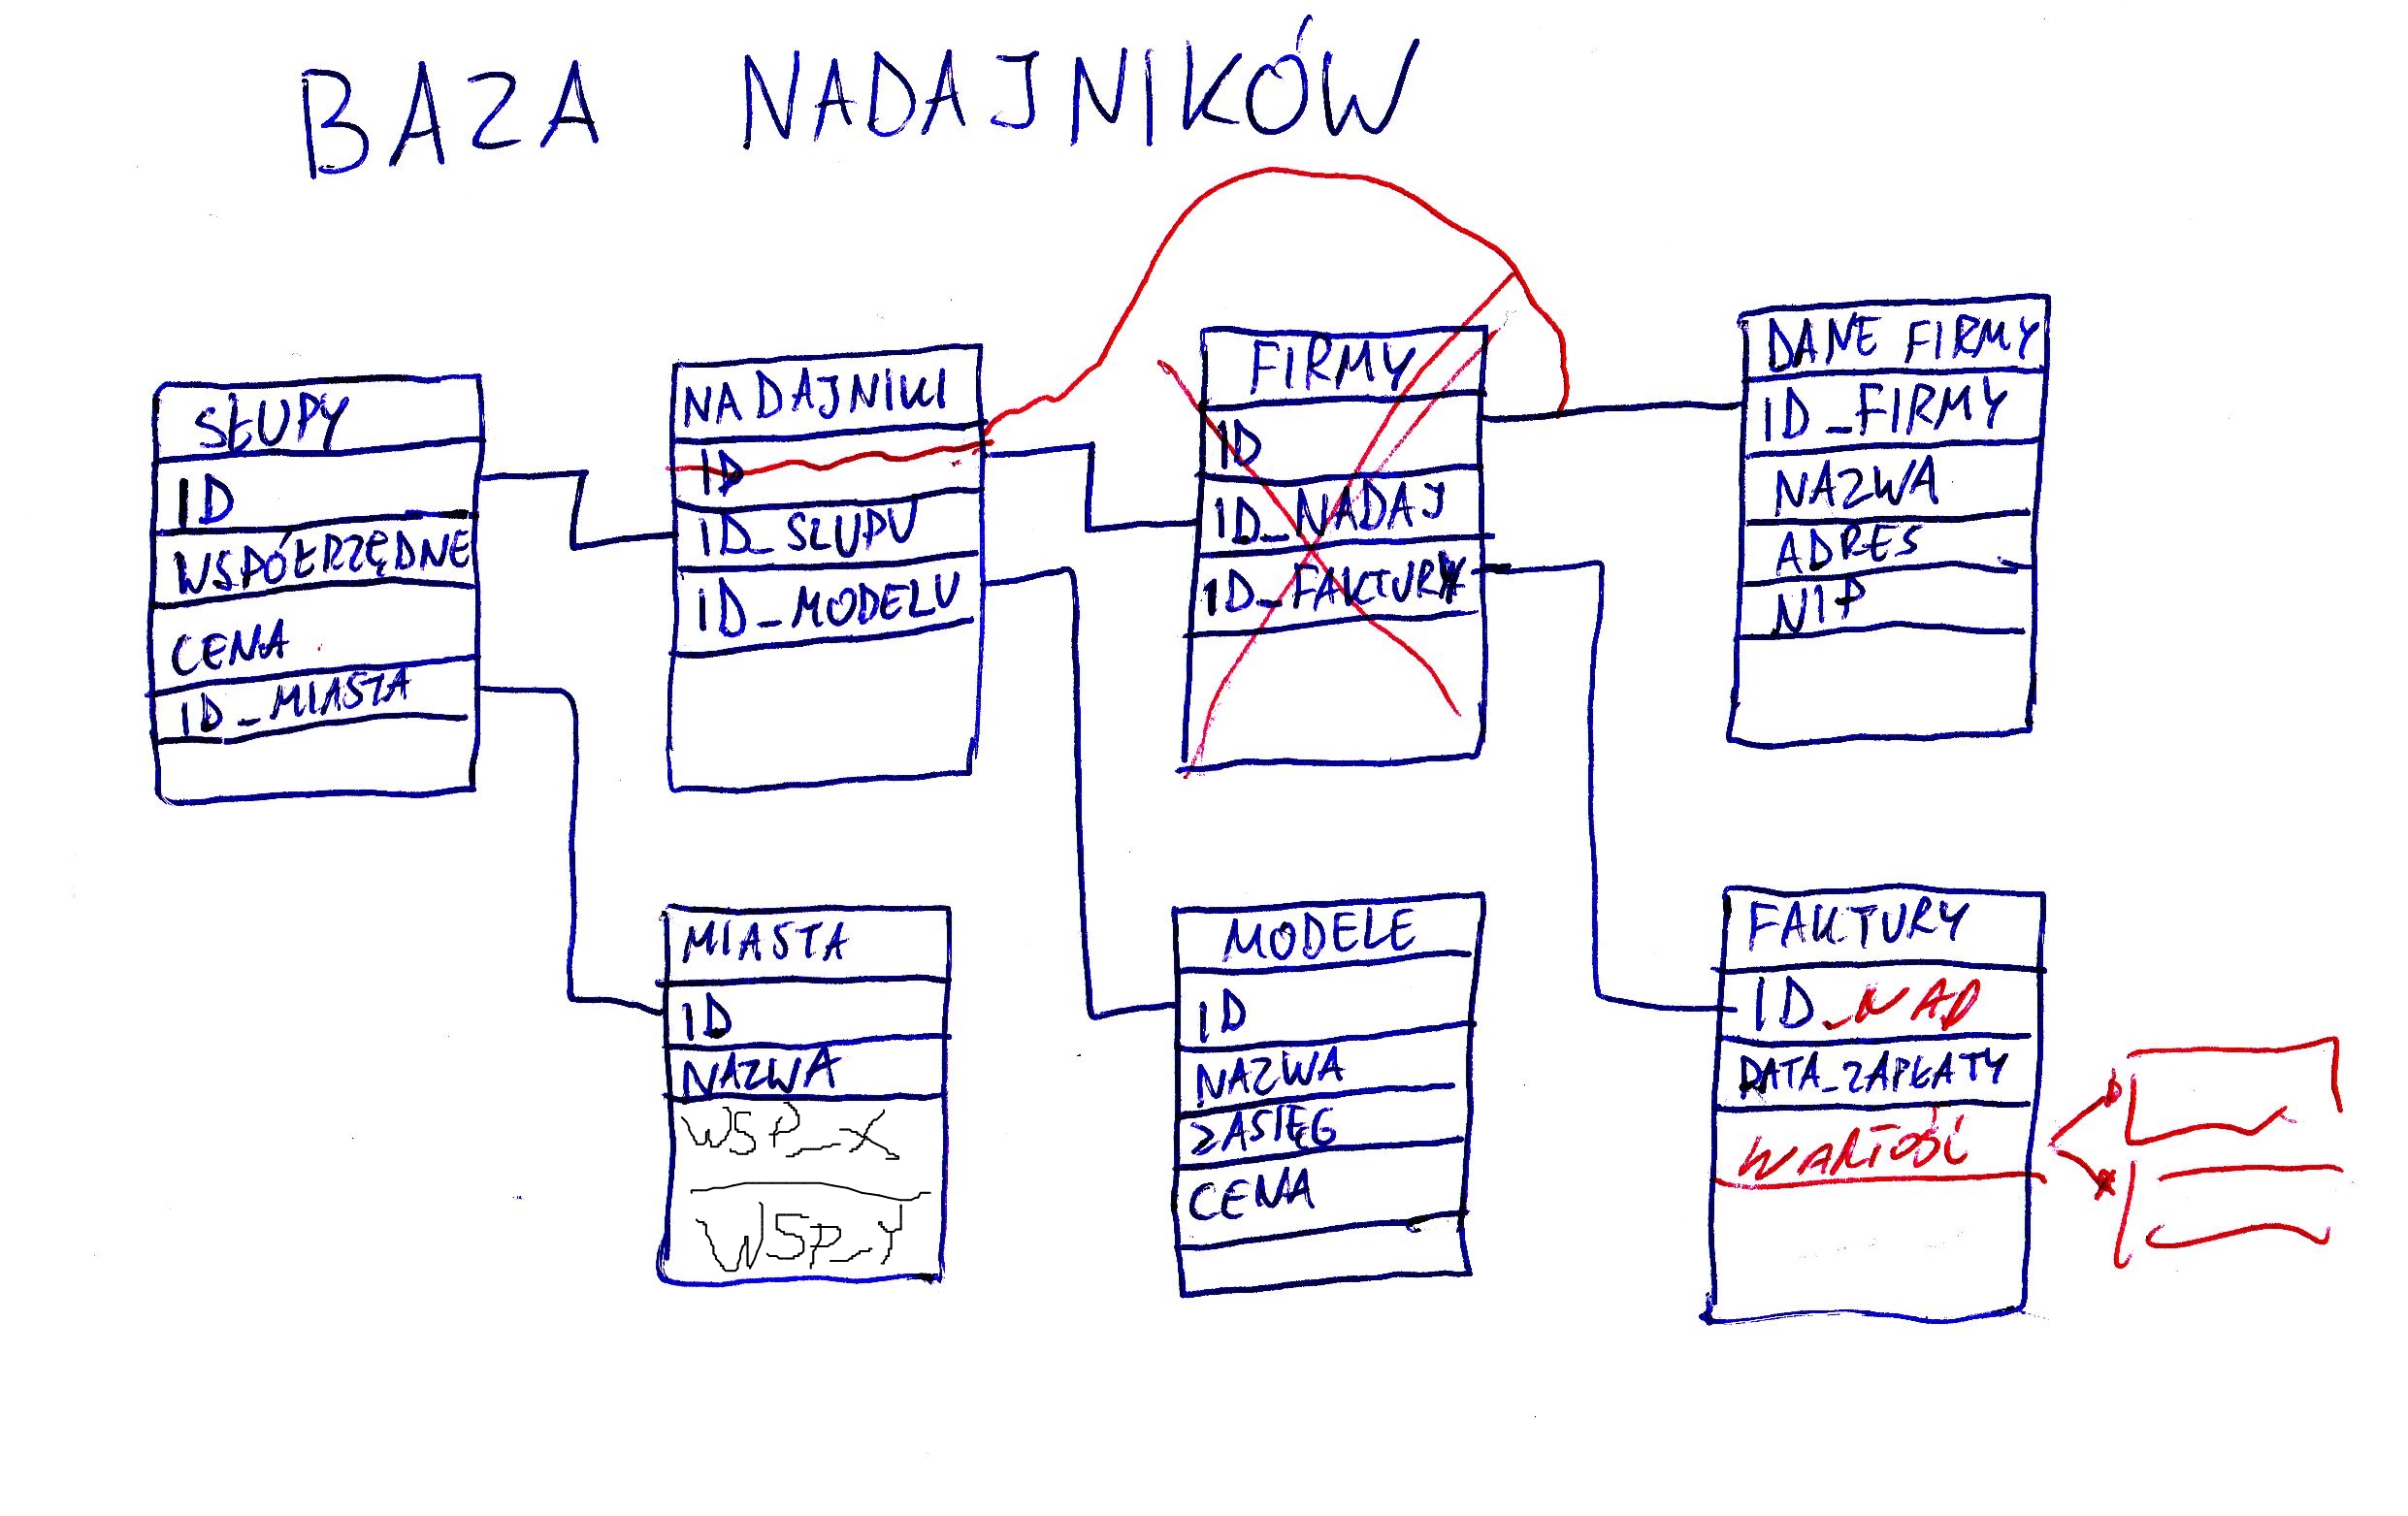 BAZA NADAJNIKÓW
SŁUPY
ID
WSPÓŁRZĘDNE
CENA
ID_MIASTA
NADAJNIKI
ID
ID_SLUPU
ID_MODELU
FIRMY
ID
ID_NADAJ
ID_FAKTURY
DANE FIRMY
ID_FIRMY
NAZWA
ADRES
NIP
MIASTA
ID
NAZWA
WSP_X
WSP_Y
MODELE
ID
NAZWA
ZASIĘG
CENA
FAKTURY
ID_NAD
DATA_ZAPŁATY
WARTOŚĆ